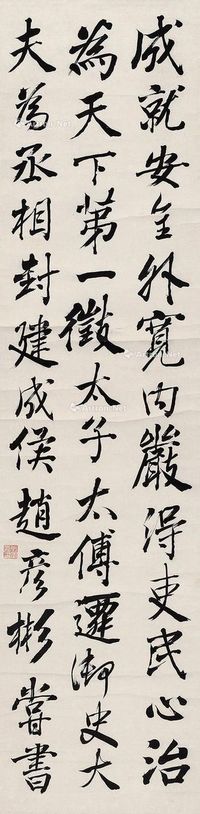 成就安全外寬内嚴得吏民心治
為天下第一徵太子太傅遷御史大
夫為丞相封建成侯趙彦彬嘗書